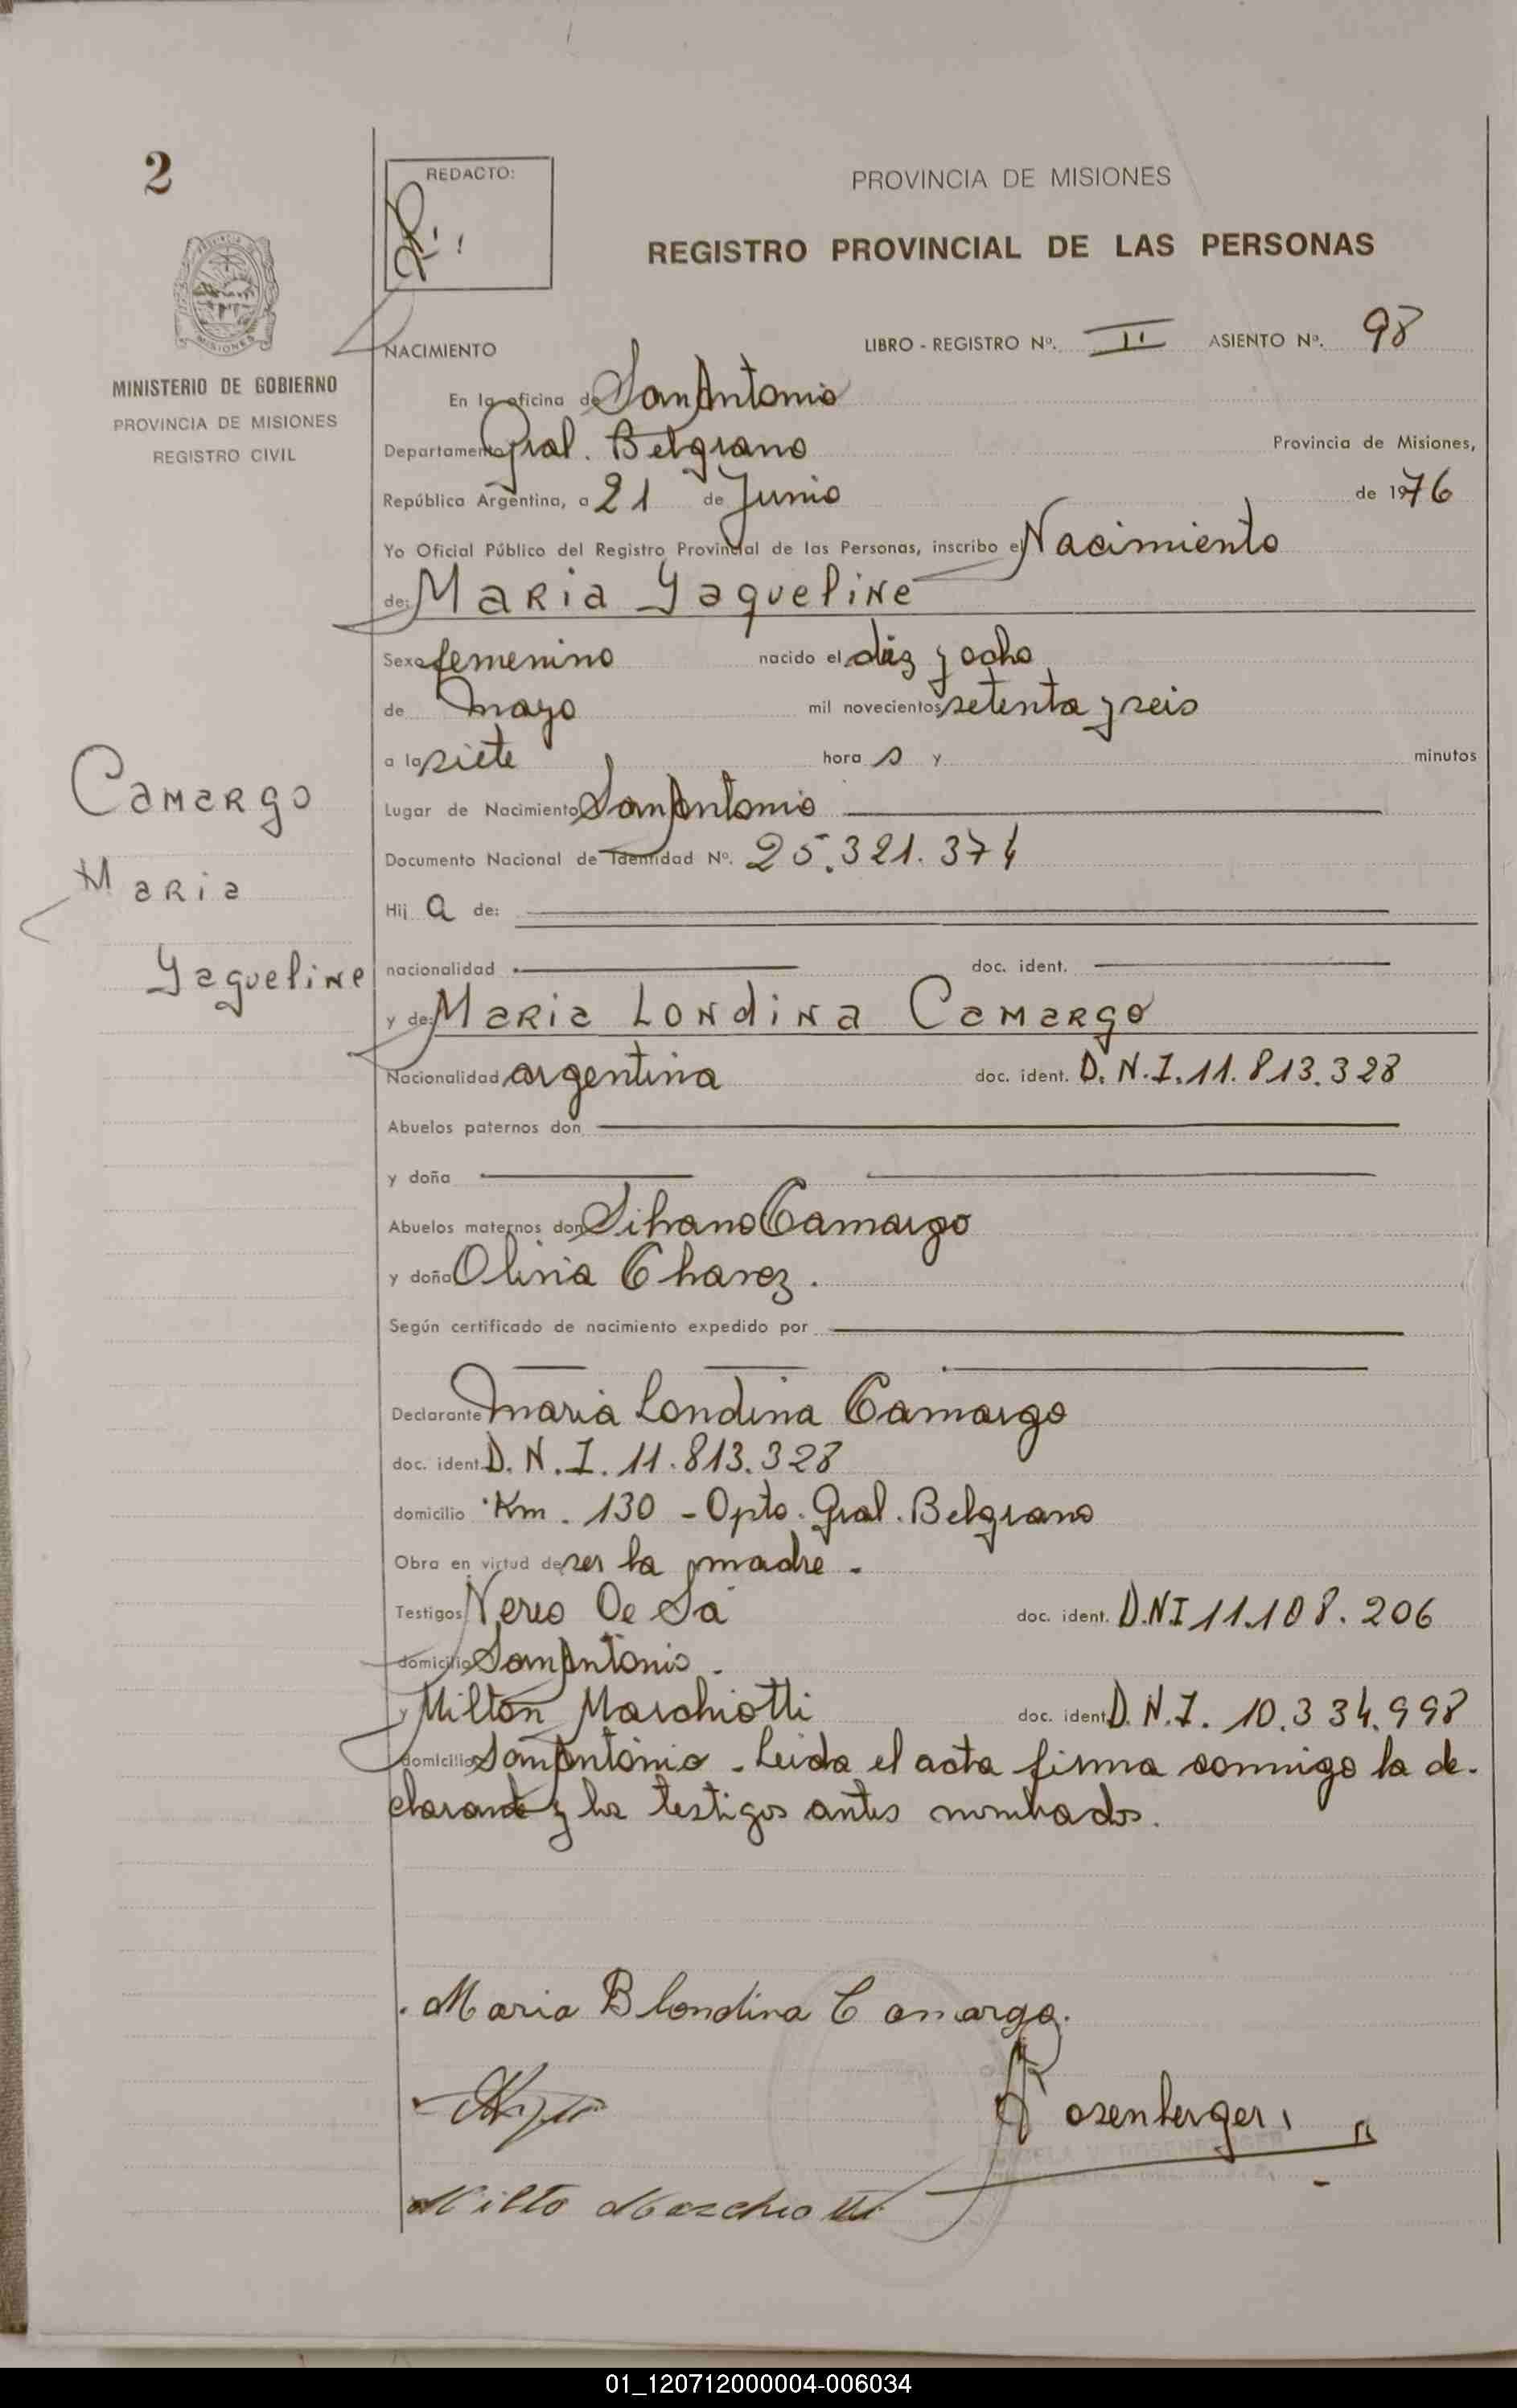 2
REDACTO:
PROVINCIA DE MISIONES
REGISTRO PROVINCIAL DE LAS PERSONAS
MISIONES
MINISTERIO DE GOBIERNO
PROVINCIA DE MISIONES
REGISTRO CIVIL
NACIMIENTO LIBRO - REGISTRO Nº. II ASIENTO Nº. 98
En la oficina de San Antonio
Departamento Gral. Belgrano Provincia de Misiones,
República Argentina, a 21 de Junio de 1976
Yo Oficial Público del Registro Provincial de las Personas, inscribo el Nacimiento
de: Maria Yaqueline
Sexo femenino nacido el diez y ocho
de mayo mil novecientos setenta y seis
a la siete hora s y minutos
Camargo
Maria
Yaqueline
Lugar de Nacimiento San Antonio
Documento Nacional de Identidad Nº. 25.321.374
Hij a de:
nacionalidad doc. ident.
y de: Maria Londina Camargo
Nacionalidad argentina doc. ident. D.N.I. 11.813.328
Abuelos paternos don
y doña
Abuelos maternos don Silvano Camargo
y doña Olivia Chavez.
Según certificado de nacimiento expedido por
Declarante Maria Londina Camargo
doc. ident. D.N.I. 11.813.328
domicilio Km. 130 - Dpto. Gral. Belgrano
Obra en virtud de ser la madre.
Testigos Nereo De Sá doc. ident. D.N.I 11.108.206
domicilio San Antonio.
y Milton Marchiotti doc. ident. D.N.I. 10.334.998
domicilio San Antonio. Leida el acta firma conmigo la de-
clarante y los testigos antes nombrados.
Maria Blondina Camargo.
Rosenberger
Milto Marchiotti
01_120712000004-006034